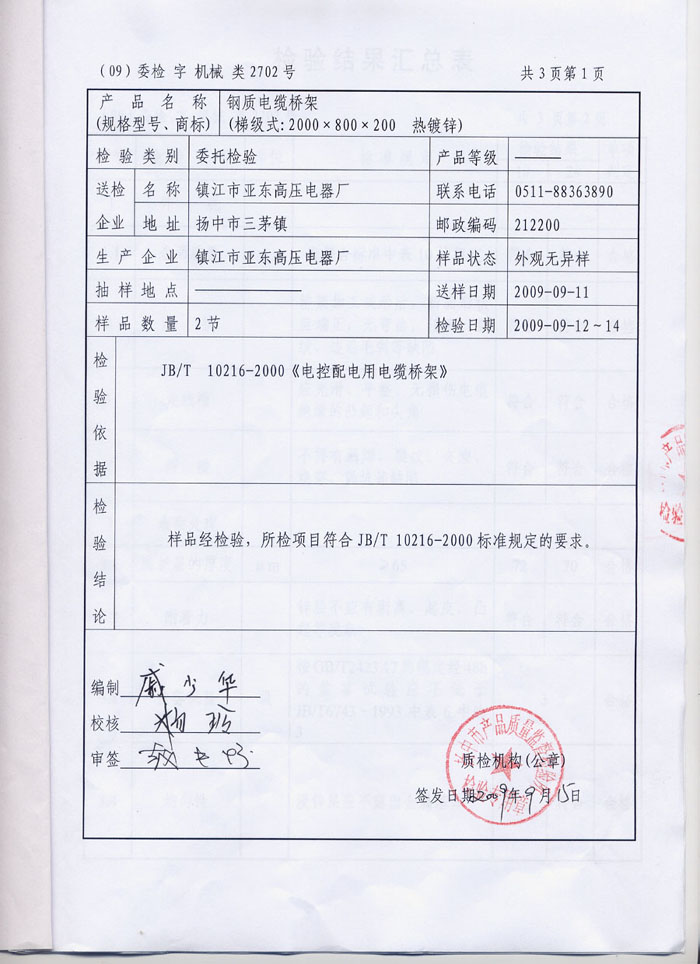 (09)委检 字 机械 类2702号 共3页第1页
产品名称 钢质电缆桥架
(规格型号、商标) (梯级式:2000×800×200 热镀锌)
检验类别 委托检验 产品等级 ———
送检 名称 镇江市亚东高压电器厂 联系电话 0511-88363890
企业 地址 扬中市三茅镇 邮政编码 212200
生产企业 镇江市亚东高压电器厂 样品状态 外观无异样
抽样地点 ——————— 送样日期 2009-09-11
样品数量 2节 检验日期 2009-09-12~14
检验依据
JB/T 10216-2000《电控配电用电缆桥架》
检验结论
样品经检验，所检项目符合JB/T 10216-2000标准规定的要求。
编制 戚少华
校核
审签
质检机构(公章)
签发日期2009年9月15日
扬中市产品质量监督检验所
检验专用章
检验